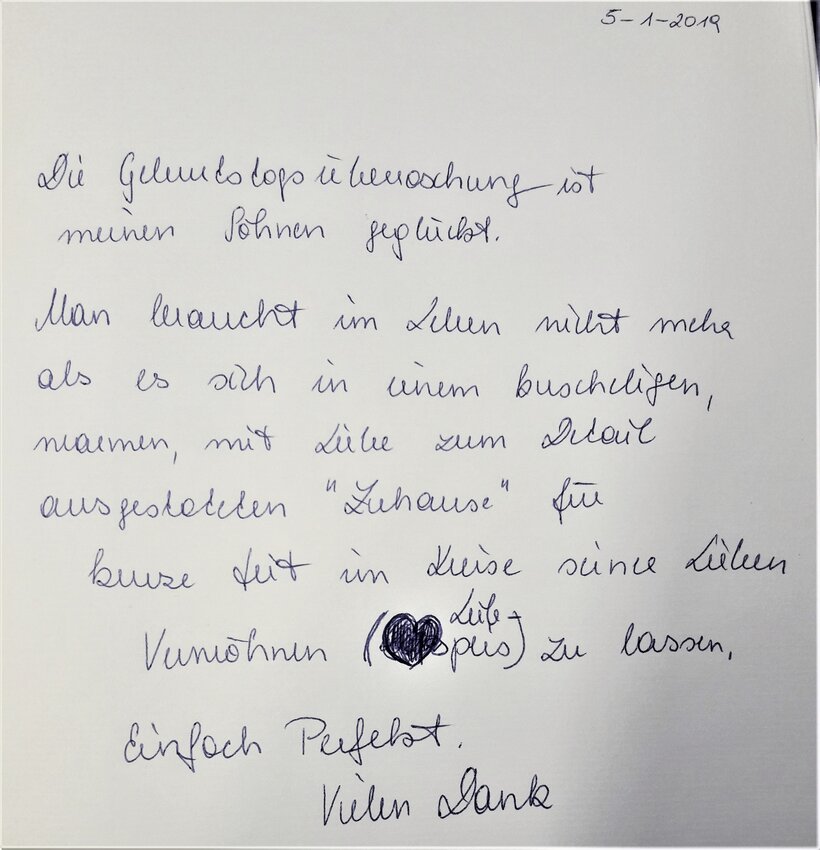 5-1-2019
Die Geburtstagsüberraschung ist
meinen Söhnen geglückt.
Man braucht im Leben nicht mehr
als es sich in einem buscheligen,
warmen, mit Liebe zum Detail
ausgestatteten "Zuhause" für
kurze Zeit im Kreise seiner Lieben
Verwöhnen ( Leib-
speis) zu lassen,
Einfach Perfekt.
Vielen Dank